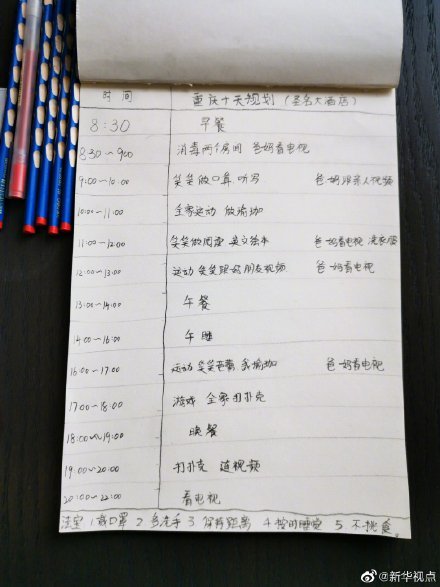 时间 重庆十天规划(圣名大酒店)
8:30 早餐
8:30~9:00 消毒两个房间 爸妈看电视
9:00~10:00 笑笑做口算.听写 爸妈跟亲人视频
10:00~11:00 全家运动 做瑜珈
11:00~12:00 笑笑做阅读 英文绘本 爸妈看电视 洗衣服
12:00~13:00 运动 笑笑跟好朋友视频 爸妈看电视
13:00~14:00 午餐
14:00~16:00 午睡
16:00~17:00 运动 笑笑芭蕾 我瑜珈 爸妈看电视
17:00~18:00 游戏 全家打扑克
18:00~19:00 晚餐
19:00~20:00 打扑克 视频
20:00~22:00 看电视
法宝 1 戴口罩 2 多洗手 3 保持距离 4 按时睡觉 5 不挑食
@新华视点